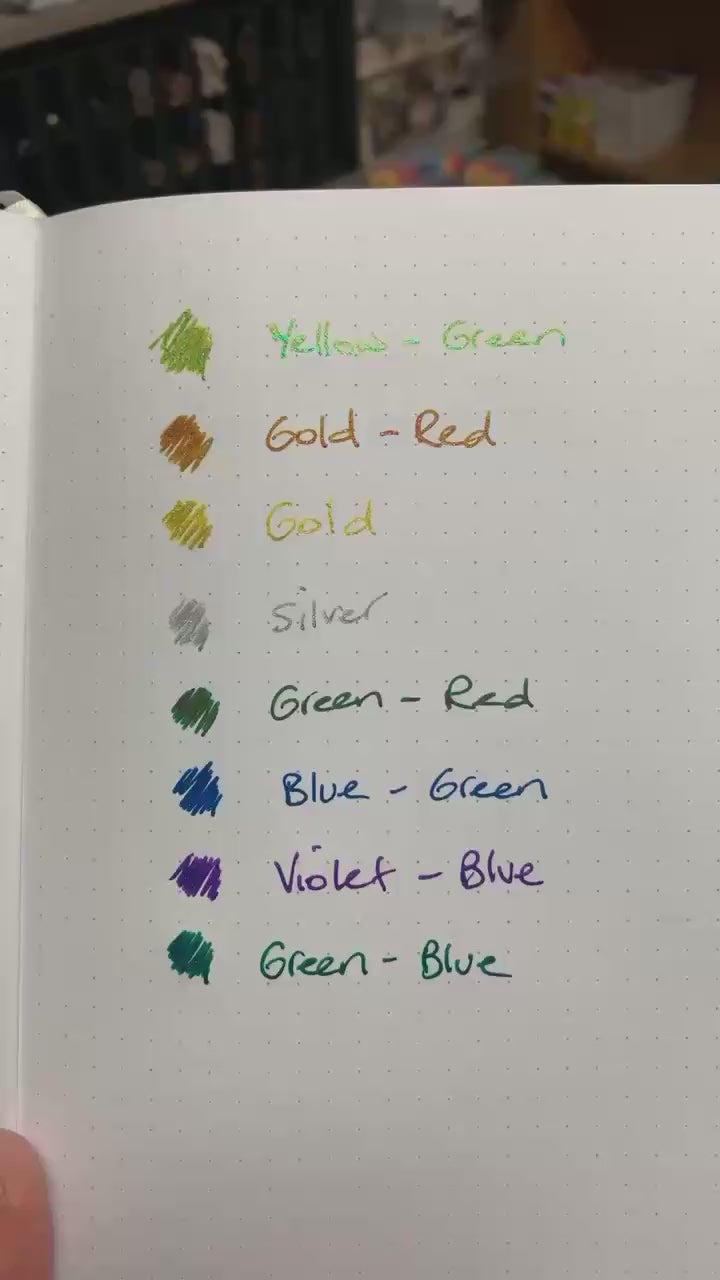 Yellow - Green
Gold - Red
Gold
Silver
Green - Red
Blue - Green
Violet - Blue
Green - Blue